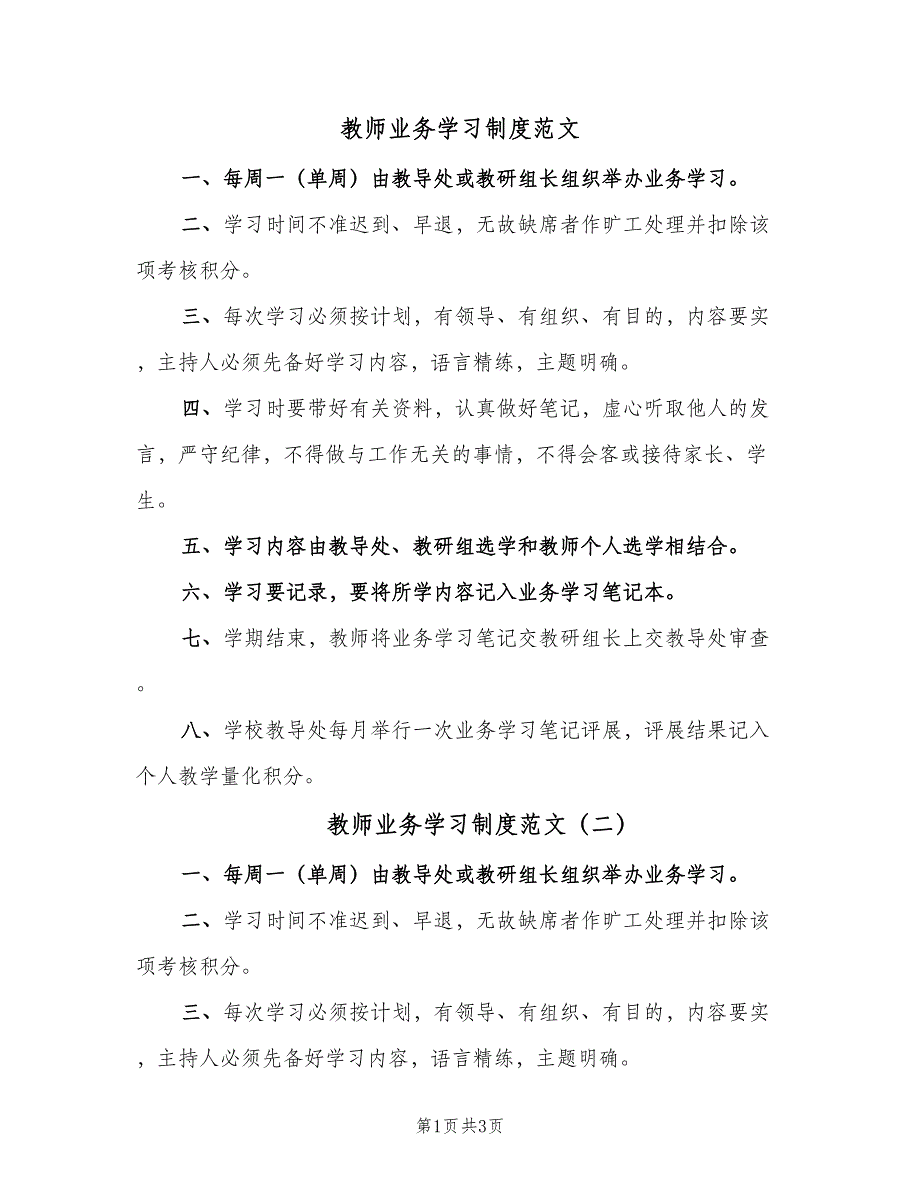 教师业务学习制度范文
一、每周一（单周）由教导处或教研组长组织举办业务学习。
二、学习时间不准迟到、早退，无故缺席者作旷工处理并扣除该
项考核积分。
三、每次学习必须按计划，有领导、有组织、有目的，内容要实
，主持人必须先备好学习内容，语言精练，主题明确。
四、学习时要带好有关资料，认真做好笔记，虚心听取他人的发
言，严守纪律，不得做与工作无关的事情，不得会客或接待家长、学
生。
五、学习内容由教导处、教研组选学和教师个人选学相结合。
六、学习要记录，要将所学内容记入业务学习笔记本。
七、学期结束，教师将业务学习笔记交教研组长上交教导处审查
。
八、学校教导处每月举行一次业务学习笔记评展，评展结果记入
个人教学量化积分。
教师业务学习制度范文（二）
一、每周一（单周）由教导处或教研组长组织举办业务学习。
二、学习时间不准迟到、早退，无故缺席者作旷工处理并扣除该
项考核积分。
三、每次学习必须按计划，有领导、有组织、有目的，内容要实
，主持人必须先备好学习内容，语言精练，主题明确。
第1页共3页